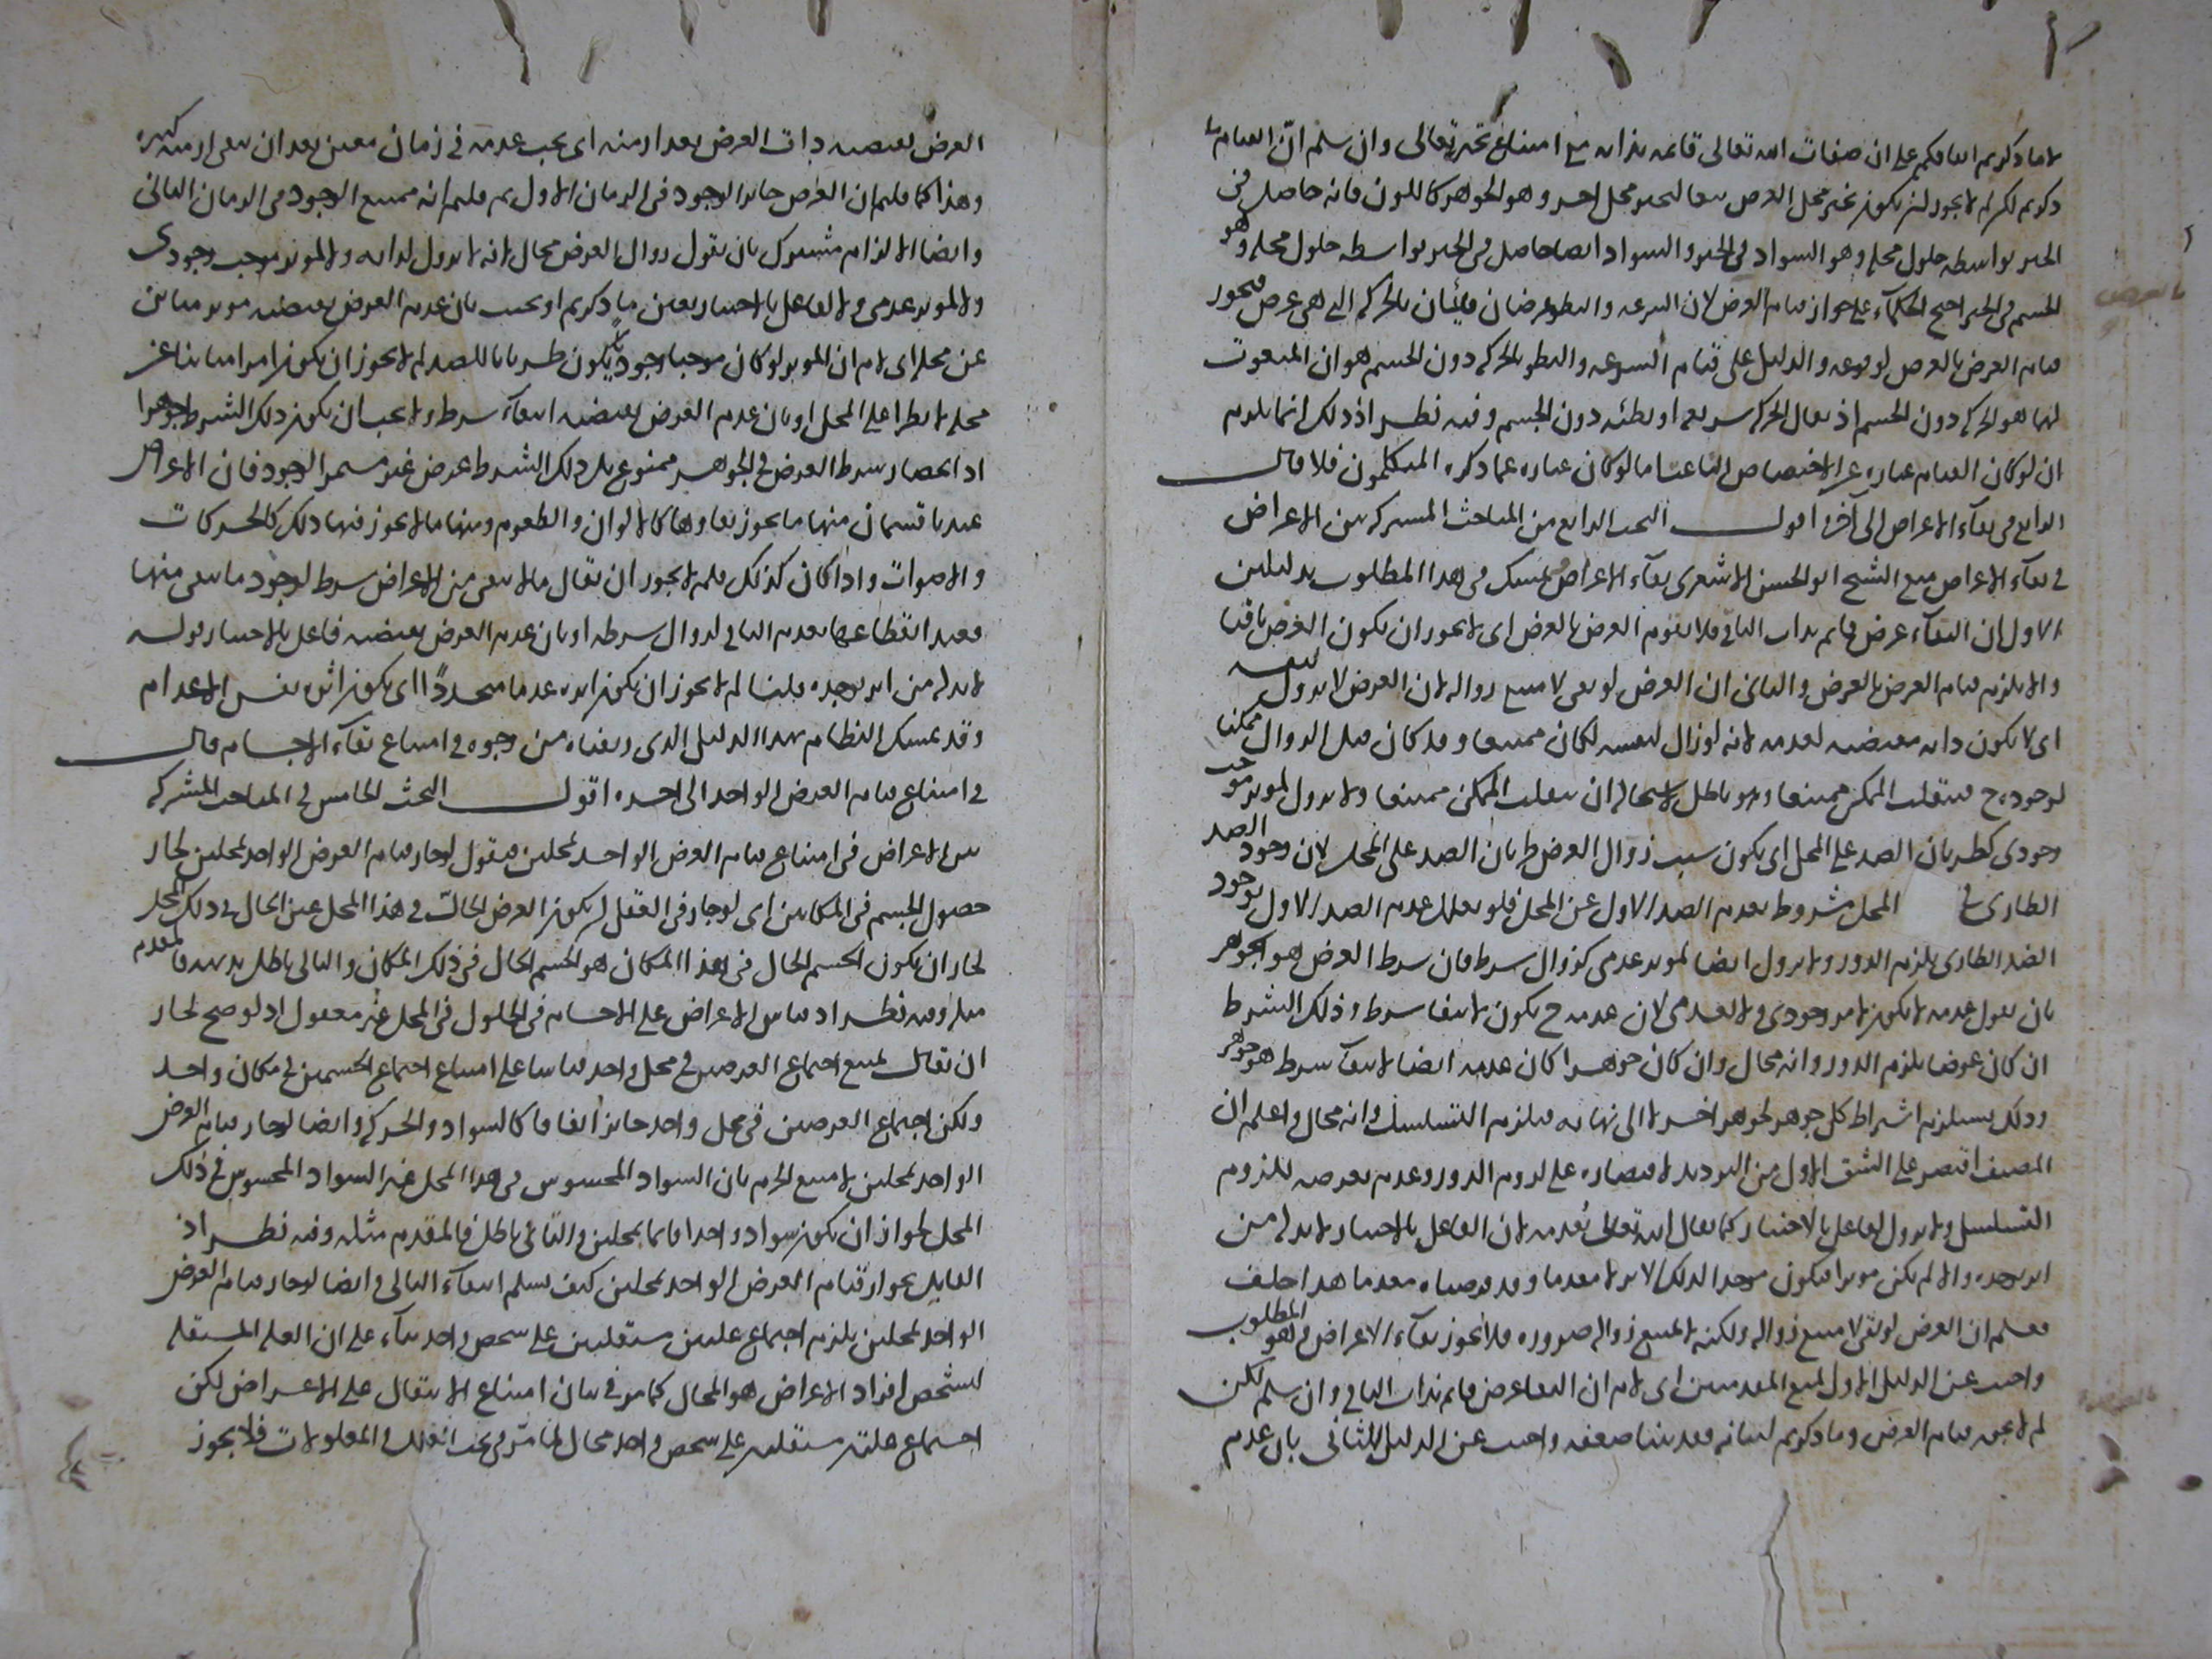 لا ما ذكرتم لاتفاقكم على ان صفات الله تعالى قائمة بذاته مع امتناع تحيزه تعالى وان سلم ان القيام ما
ذكرتم لكن لم لا يجوز ان يكون تحيز محل العرض تبعا لتحيز محل اخر وهو الجوهر كاللون فانه حاصل في
الحيز بواسطة حلول محله وهو السواد في الحيز والسواد ايضا حاصل في الحيز بواسطة حلول محله وهو
الجسم في الحيز احتج الحكماء على جواز قيام العرض لان السرعة والبطو عرضان قائمان بالحركة التي هي عرض فيجوز
قيام العرض بالعرض لوقوعه والدليل على قيام السرعة والبطو بالحركة دون الجسم هو ان المنعوت
بهما هو الحركة دون الجسم اذ يقال الحركة سريعة او بطئة دون الجسم وفيه نظر اذ ذلك انما يلزم
ان لو كان القيام عبارة عن الاختصاص الناعت اما لو كان عبارة عما ذكره المتكلمون فلا قال
الرابع في بقاء الاعراض الى آخره اقول البحث الرابع من المباحث المشتركة بين الاعراض
في بقاء الاعراض منع الشيخ ابو الحسن الاشعري بقاء الاعراض وتمسك في هذا المطلوب بدليلين
الاول ان البقاء عرض قائم بذات الباقي فلا يقوم العرض بالعرض اى لا يجوز ان يكون العرض باقيا
والا يلزم قيام العرض بالعرض والثاني ان العرض لو بقى لامتنع زواله لان العرض لا يزول لنفسه
اى لا يكون ذاته مقتضية لعدمه لانه لو زال لنفسه لكان ممتنعا وقد كان قبل الزوال ممكنا
لوجوده ح فينقلب الممكن ممتنعا وهو باطل لاستحالة ان ينقلب الممكن ممتنعا ولا يزول لموثر موجب
وجودى كطريان الضد على المحل اى يكون سبب زوال العرض طريان الضد على المحل لان وجود الضد
الطارى في المحل مشروط بعدم الضد الاول عن المحل فلو يعلل عدم الضد الاول بوجود
الضد الطارى يلزم الدور ولا يزول ايضا لموثر عدمى كزوال شرط فان شرط العرض هو الجوهر
بان نقول عدمه لا يكون لامر وجودى ولا لعدمى لان عدمه ح يكون لانتفا شرط وذلك الشرط
ان كان عرضا يلزم الدور وانه محال وان كان جوهرا كان عدمه ايضا لانتفاء شرط هو جوهر
وذلك يستلزم اشتراط كل جوهر لجوهر اخر لا الى نهاية فيلزم التسلسل وانه محال واعلم ان
المصنف اقتصر على الشق الاول من الترديد لاقتصاره على لزوم الدور وعدم تعرضه للزوم
التسلسل ولا يزول لفاعل بالاختيار كما يقال الله تعالى يُعدمه لان الفاعل بالاختيار لا بد له من
اثر يوجده والا لم يكن موثرا فيكون موجدا لذلك الاثر لا معدما وقد فرضناه معدما هذا خلف
فعلم ان العرض لو بقى لامتنع زواله ولكنه لا يمتنع زواله ضرورة فلا يجوز بقاء الاعراض وهو المطلوب
واجيب عن الدليل الاول بمنع المقدمتين اى لا نم ان البقا عرض قائم بذات الباقي وان سلم لكن
لم لا يجوز قيام العرض وما ذكرتم لبيانه فقد بينا ضعفه واجيب عن الدليل الثاني بان عدم
العرض يقتضيه ذات العرض بعد ازمنة اى يجب عدمه في زمان معين بعد ان بقى ازمنة كثيرة
وهذا كما قلتم ان العرض جائز الوجود في الزمان الاول ثم قلتم انه ممتنع الوجود في الزمان الثاني
وايضا الالزام مشترك بان نقول زوال العرض محال لانه لا يزول لذاته ولا لموثر موجب وجودى
ولا لموثر عدمى ولا لفاعل بالاختيار بعين ما ذكرتم او نجيب بان عدم العرض يقتضيه موثر مباين
عن محله اى لا نم ان الموثر لو كان موجبا وجوديا يكون طريانا للضد لم لا يجوز ان يكون امرا مباينا عن
محله لا يطرا على المحل او بان عدم العرض يقتضيه انتفاء شرط ولا يجب ان يكون ذلك الشرط جوهرا
اذ انحصار شرط العرض في الجوهر ممنوع بل ذلك الشرط عرض غير مستمر الوجود فان الاعراض
عندنا قسمان منها ما يجوز بقاوها كالالوان والطعوم ومنها ما لا يجوز فيها ذلك كالحركات
والاصوات واذا كان كذلك فلم لا يجوز ان يقال ما لا يبقى من الاعراض شرط لوجود ما يبقى منها
فعند انقطاعها يعدم الباقي لزوال شرطه او بان عدم العرض يقتضيه فاعل بالاختيار قوله
لا بد له من اثر يوجده قلنا لم لا يجوز ان يكون اثره عدما متجددا اى يكون اثره نفس الاعدام
وقد تمسك النظام بهذا الدليل الذى زيفناه من وجوه في امتناع بقاء الاجسام قال
في امتناع قيام العرض الواحد الى اخره اقول البحث الخامس في المباحث المشتركة
بين الاعراض في امتناع قيام العرض الواحد بمحلين فيقول لو جاز قيام العرض الواحد بمحلين لجاز
حصول الجسم في المكانين اى لو جاز في العقل ان يكون العرض الحال في هذا المحل عين الحال في ذلك المحل
لجاز ان يكون الجسم الحال في هذا المكان هو الجسم الحال في ذلك المكان والتالى باطل بديهة فالمقدم
مثله وفيه نظر اذ قياس الاعراض على الاجسام في الحلول في المحل غير معقول اذ لو صح لجاز
ان يقال يمتنع اجتماع العرضين في محل واحد قياسا على امتناع اجتماع الجسمين في مكان واحد
ولكن اجتماع العرضين في محل واحد جائز اتفاقا كالسواد والحركة وايضا لو جاز قيام العرض
الواحد بمحلين لامتنع الجزم بان السواد المحسوس في هذا المحل غير السواد المحسوس في ذلك
المحل لجواز ان يكون سواد واحد قائما بمحلين والتالى باطل فالمقدم مثله وفيه نظر اذ
القايل بجواز قيام العرض الواحد بمحلين كيف يسلم انتفاء التالى وايضا لو جاز قيام العرض
الواحد بمحلين يلزم اجتماع علتين مستقلتين على شخص واحد بناء على ان العلة المستقلة
لتشخص افراد الاعراض هو المحال كما مر في بيان امتناع الانتقال على الاعراض لكن
اجتماع علتين مستقلتين على شخص واحد محال لما مر في بحث العلل والمعلولات فلا يجوز